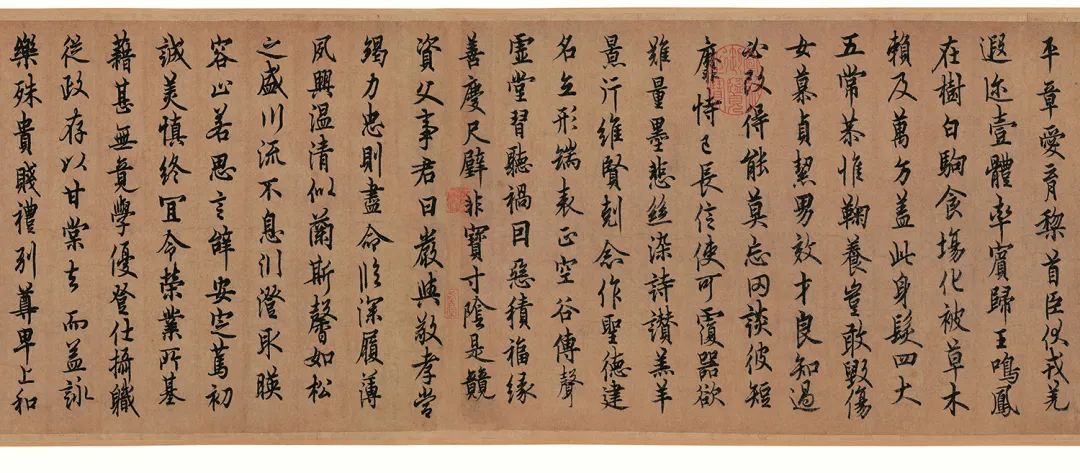 平章愛育黎首臣伏戎羌
遐迩壹體率賓歸王鳴鳳
在樹白駒食場化被草木
賴及萬方蓋此身髮四大
五常恭惟鞠養豈敢毀傷
女慕貞絜男效才良知過
必改得能莫忘罔談彼短
靡恃己長信使可覆器欲
難量墨悲絲染詩讃羔羊
景行維賢剋念作聖德建
名立形端表正空谷傳聲
虛堂習聽禍因惡積福緣
善慶尺璧非寶寸陰是競
資父事君曰嚴與敬孝當
竭力忠則盡命臨深履薄
夙興温清似蘭斯馨如松
之盛川流不息淵澄取暎
容止若思言辭安定篤初
誠美慎終宜令榮業所基
藉甚無竟學優登仕攝職
從政存以甘棠去而益詠
樂殊貴賤禮別尊卑上和